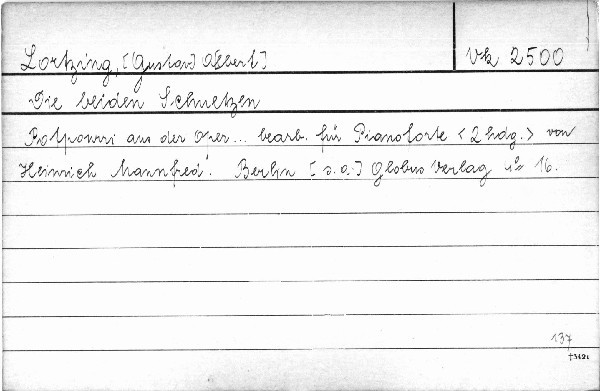 Lortzing, [Gustav] Albert]
Vk 2500
Die beiden Schuetzen
Potpourri aus der Oper... bearb. für Pianoforte <2 hdg.> von
Heinrich Mannfred. Berlin [s.a.] Globus Verlag 16.
137